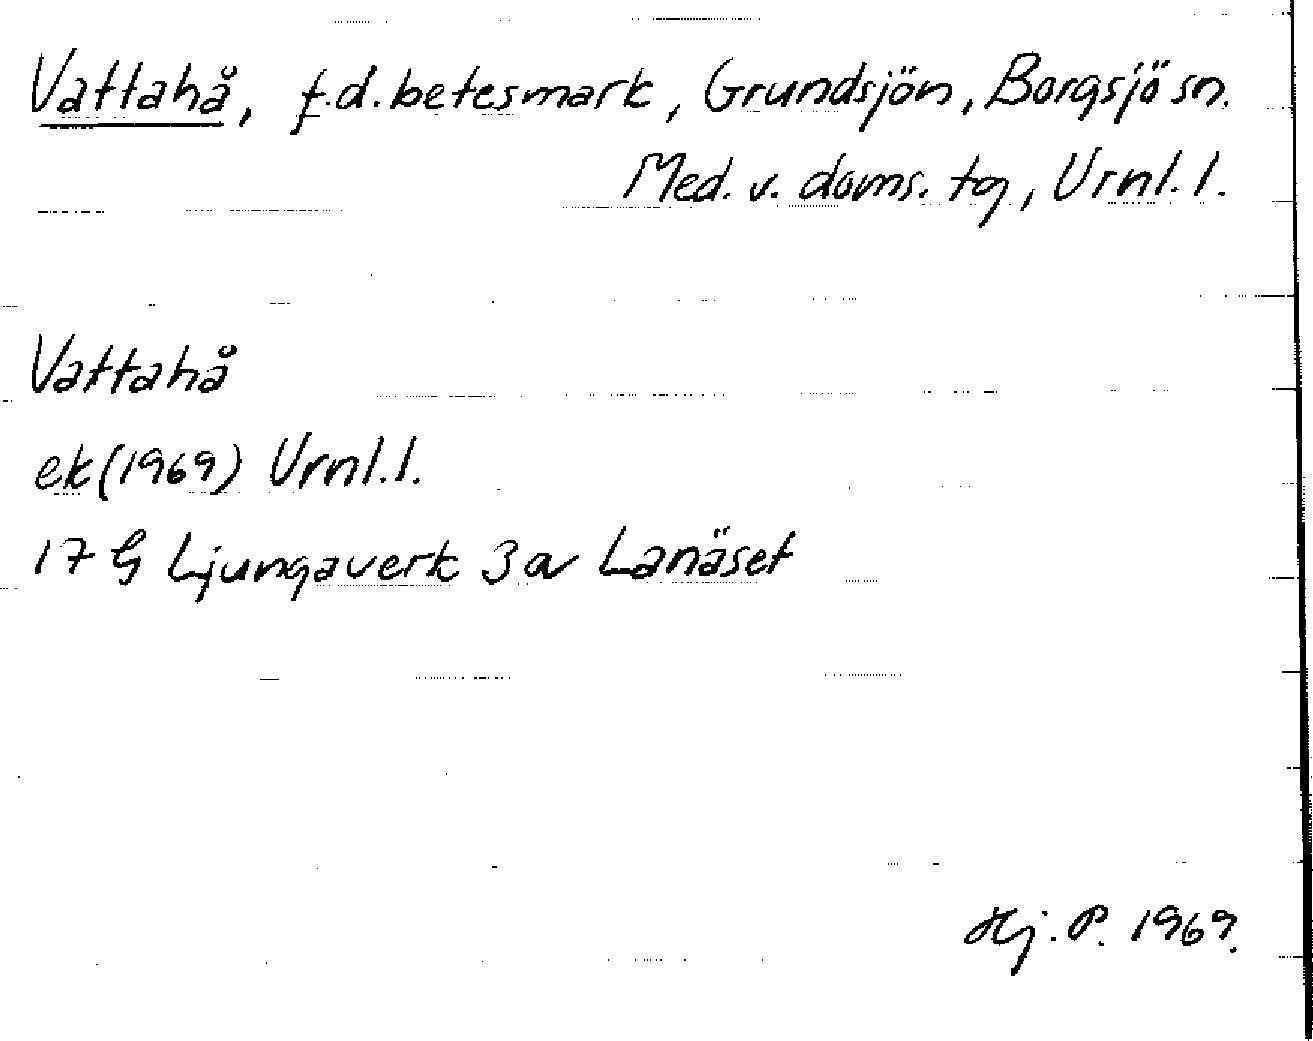 Vattahå, f.d. betesmark, Grundsjön, Borgsjö sn.
Med. v. doms. tg, Urnl. l.
Vattahå
ek (1969) Urnl. l.
17 G Ljungaverk 3 a Lanäset
Hj. P. 1969.